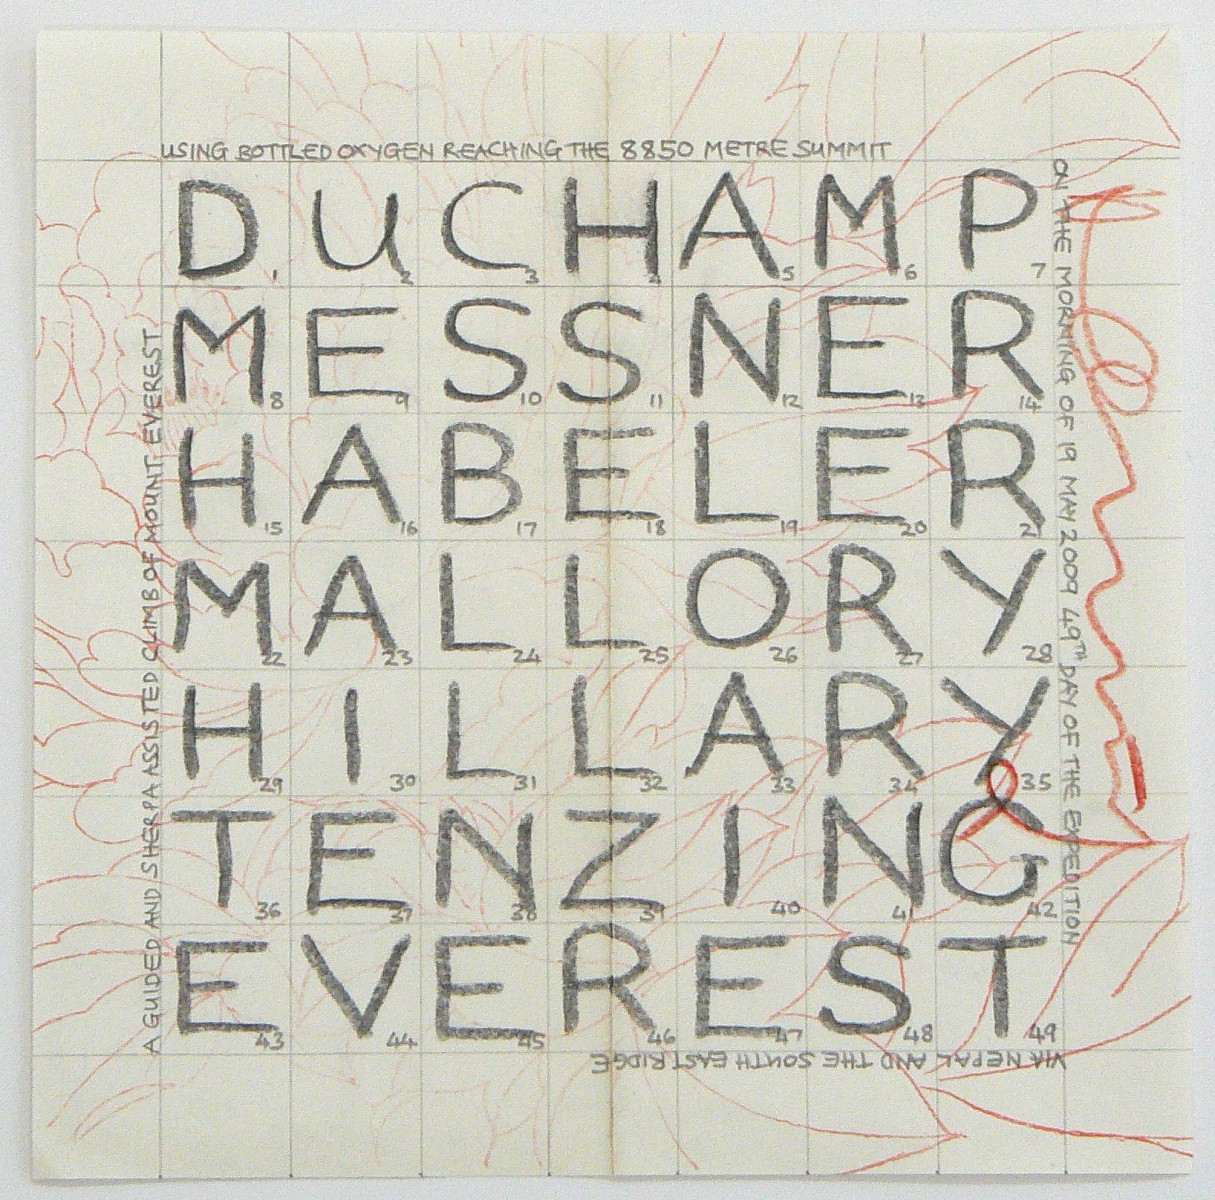 A GUIDED AND SHERPA ASSISTED CLIMB OF MOUNT EVEREST
USING BOTTLED OXYGEN REACHING THE 8850 METRE SUMMIT
ON THE MORNING OF 19 MAY 2009 49TH DAY OF THE EXPEDITION
VIA NEPAL AND THE SOUTH EAST RIDGE
D U C H A M P
1 2 3 4 5 6 7
M E S S N E R
8 9 10 11 12 13 14
H A B E L E R
15 16 17 18 19 20 21
M A L L O R Y
22 23 24 25 26 27 28
H I L L A R Y
29 30 31 32 33 34 35
T E N Z I N G
36 37 38 39 40 41 42
E V E R E S T
43 44 45 46 47 48 49